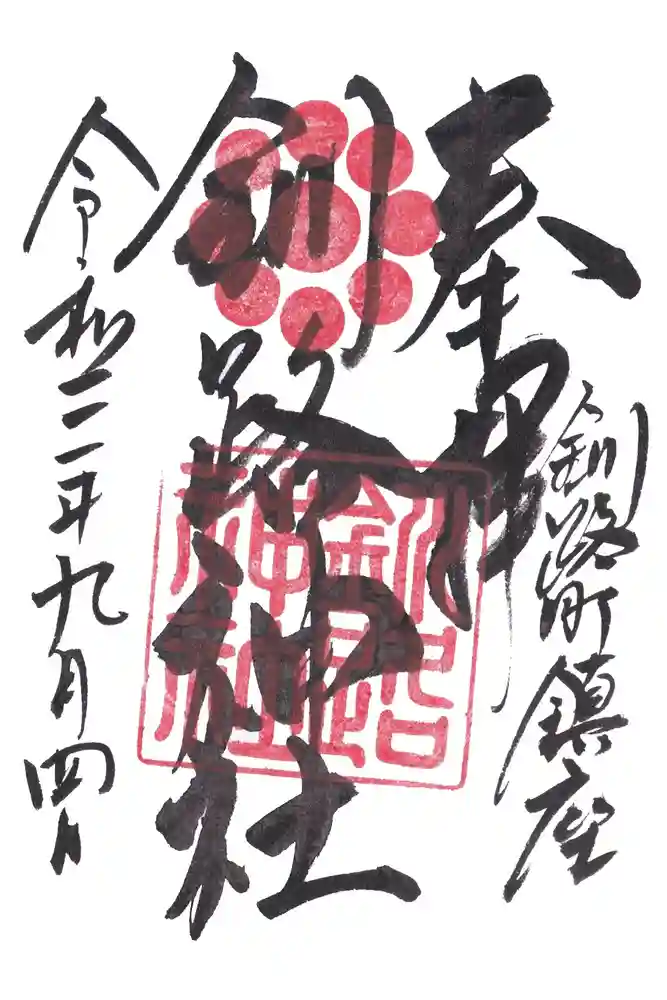 奉拝
釧路町鎮座
釧路神社
釧路
神社
令和二年九月四日